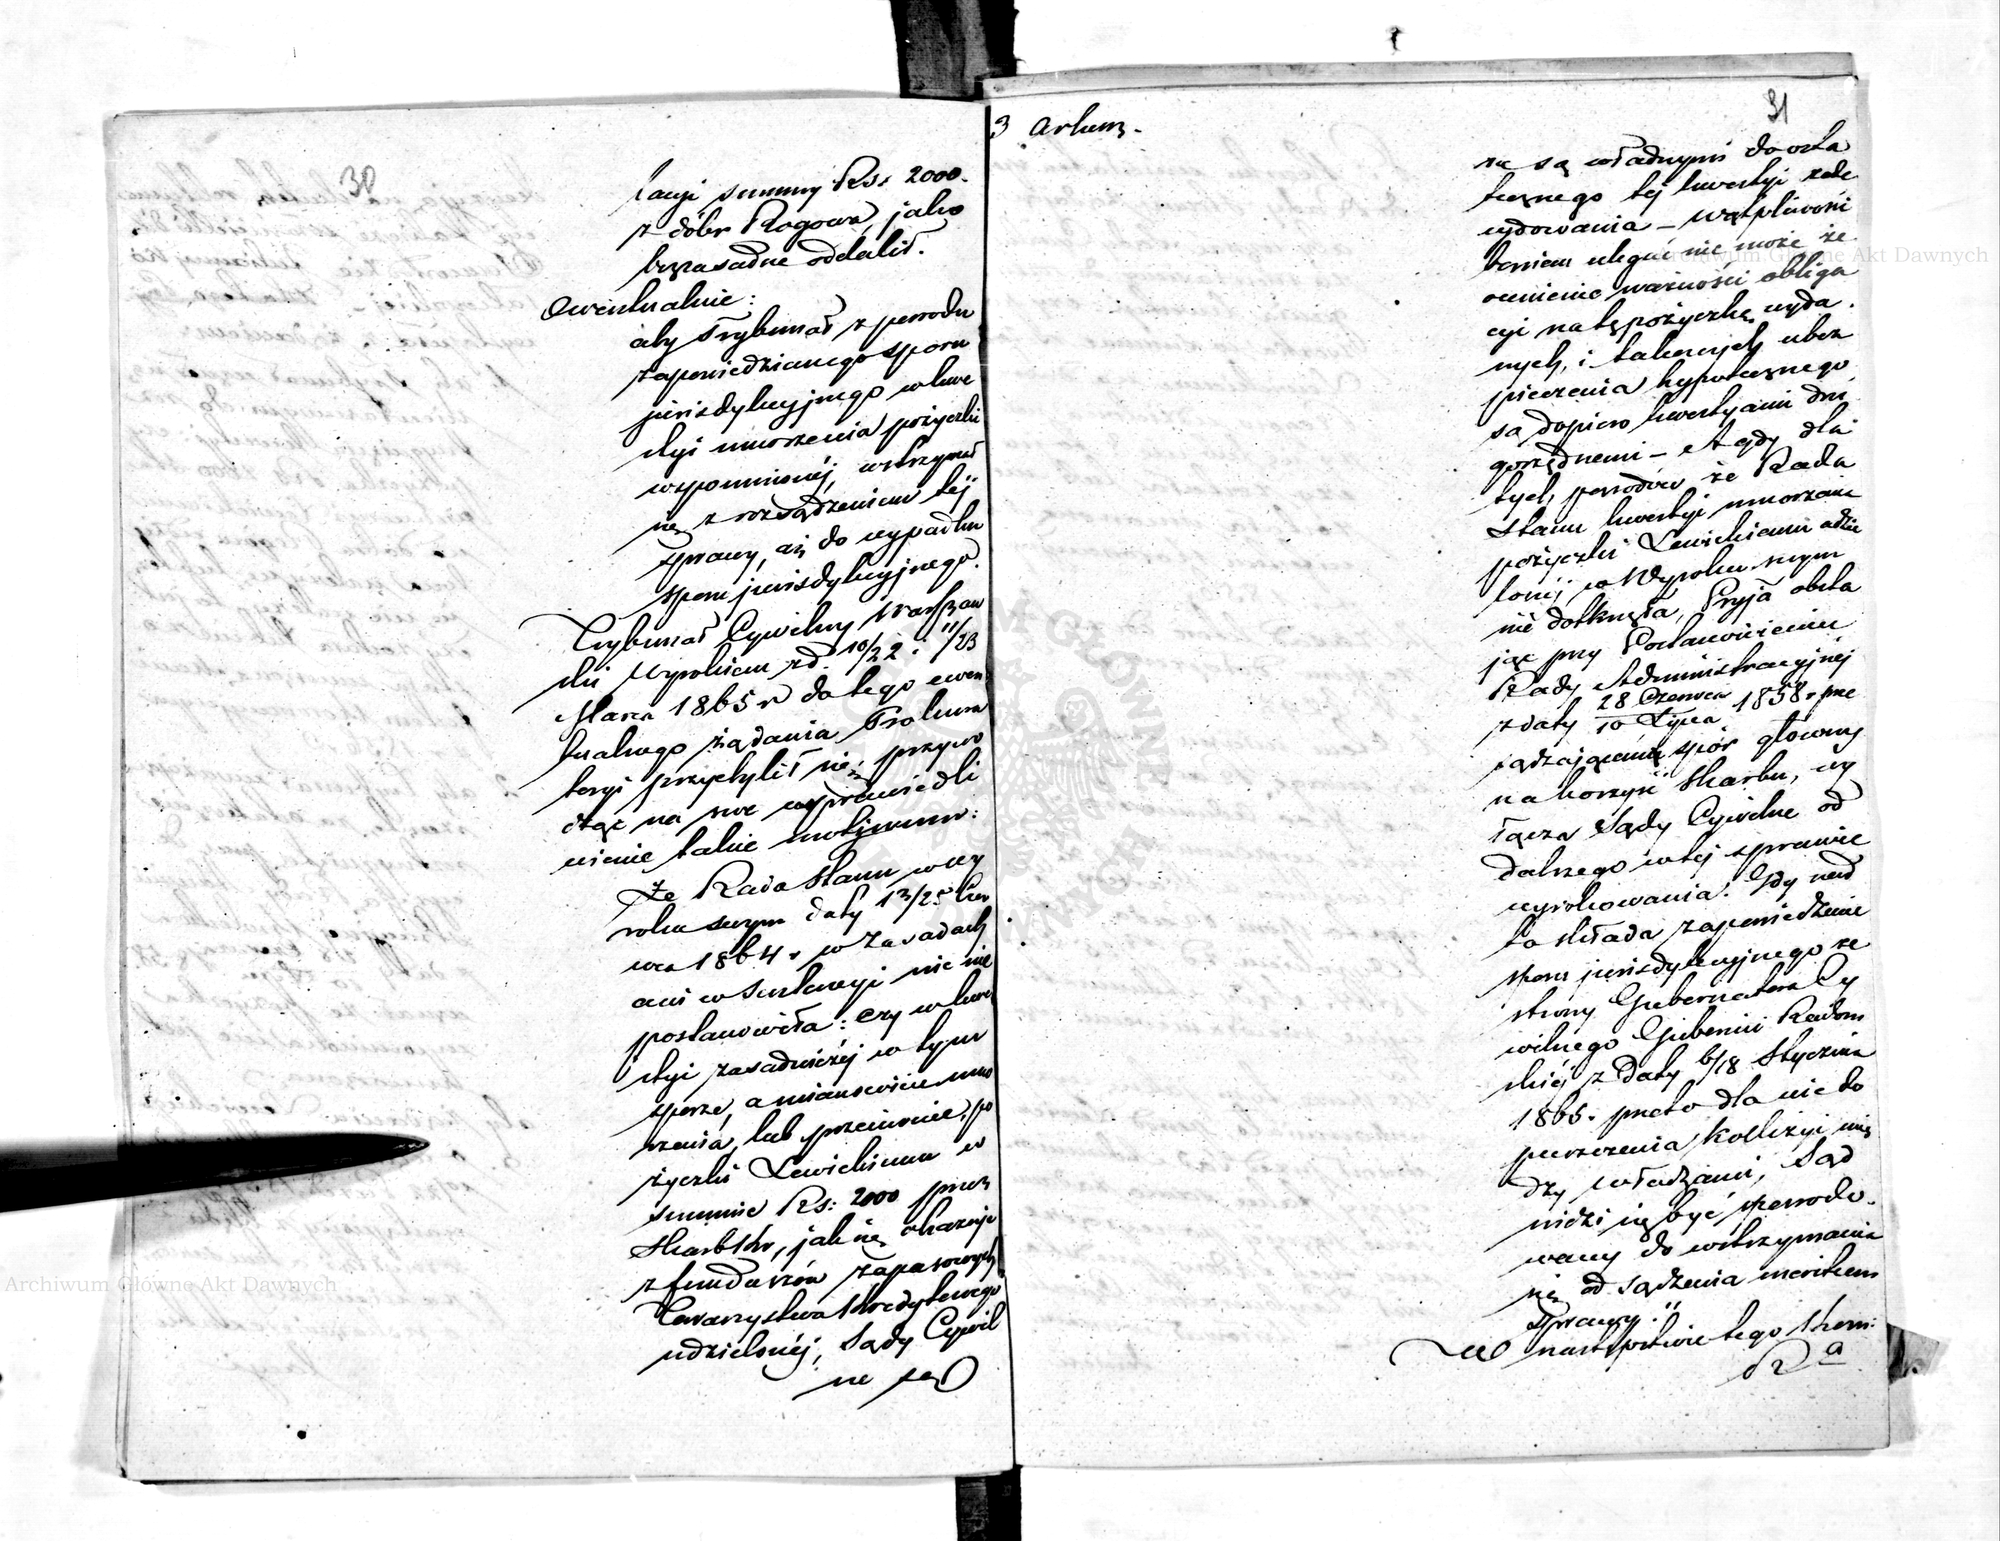 30
lacyi summy Rsr 2000.
z dóbr Rogowa, jako
bezzasadne oddalił.
Ewentualnie:
aby Trybunał z powodu
zapowiedzianego sporu
jurisdykcyjnego w kwe
styi umorzenia pożyczki
wspomnionéj, wstrzymał
się z rozsądzeniem téj
sprawy, aż do wypadku
sporu jurisdykcyjnego.
Trybunał Cywilny Warszaw
ski Wyrokiem z d. 10/22 i 11/23
Marca 1865 r do tego ewen
tualnego żądania Prokura
toryi przychylił się; przywo
dząc na swe usprawiedli
wienie takie motywum:
Że Rada Stanu w wy
roku swym daty 13/25 Czer
wca 1864 r w zasadach
ani w Sentencyi nic nie
postanowiła: czy w kwe
styi zasadniczéj w tym
sporze, a mianowicie umo
rzenia, lub przeciwnie, po
życzki Lewickiemu w
summie Rs: 2000 przez
Skarb Kr, jak się okazuje
z funduszów zapasowych
Towarzystwa Kredytowego
udzielonéj, Sądy Cywil
ne są
3 Arkusz.
31
ne są władnymi do osta
tecznego téj kwestyi zade
cydowania – wątpliwości
bowiem ulegać nie może że
ocenienie ważności obliga
cyi na tę pożyczkę wyda
nych, i takowych ubez
pieczenia hypotecznego
są dopiero kwestyami dru
gorzędnemi – A gdy dla
tych powodów że Rada
Stanu kwestyi umorzenia
pożyczki Lewickiemu udzie
lonéj w Wyroku swym
nie dotknęła, Rząd obsta
jąc przy Postanowieniu
Rady Administracyjnéj
z daty 28 Czerwca/10 Lipca 1858 r prze
sądzającemu spór główny
na korzyść Skarbu, wy
łącza Sądy Cywilne od
dalszego w téj sprawie
wyrokowania: Gdy nad
to składa zapowiedzenie
sporu jurisdykcyjnego ze
strony Gubernatora Cy
wilnego Gubernii Radom
skiéj z daty 6/18 Stycznia
1865. przeto dla nie do
puszczenia kollizyi mię
dzy władzami, Sąd
widzi się być spowodo
wany do wstrzymania
się od sądzenia meritum
Sprawy."
W następstwie tego Kom:
R a